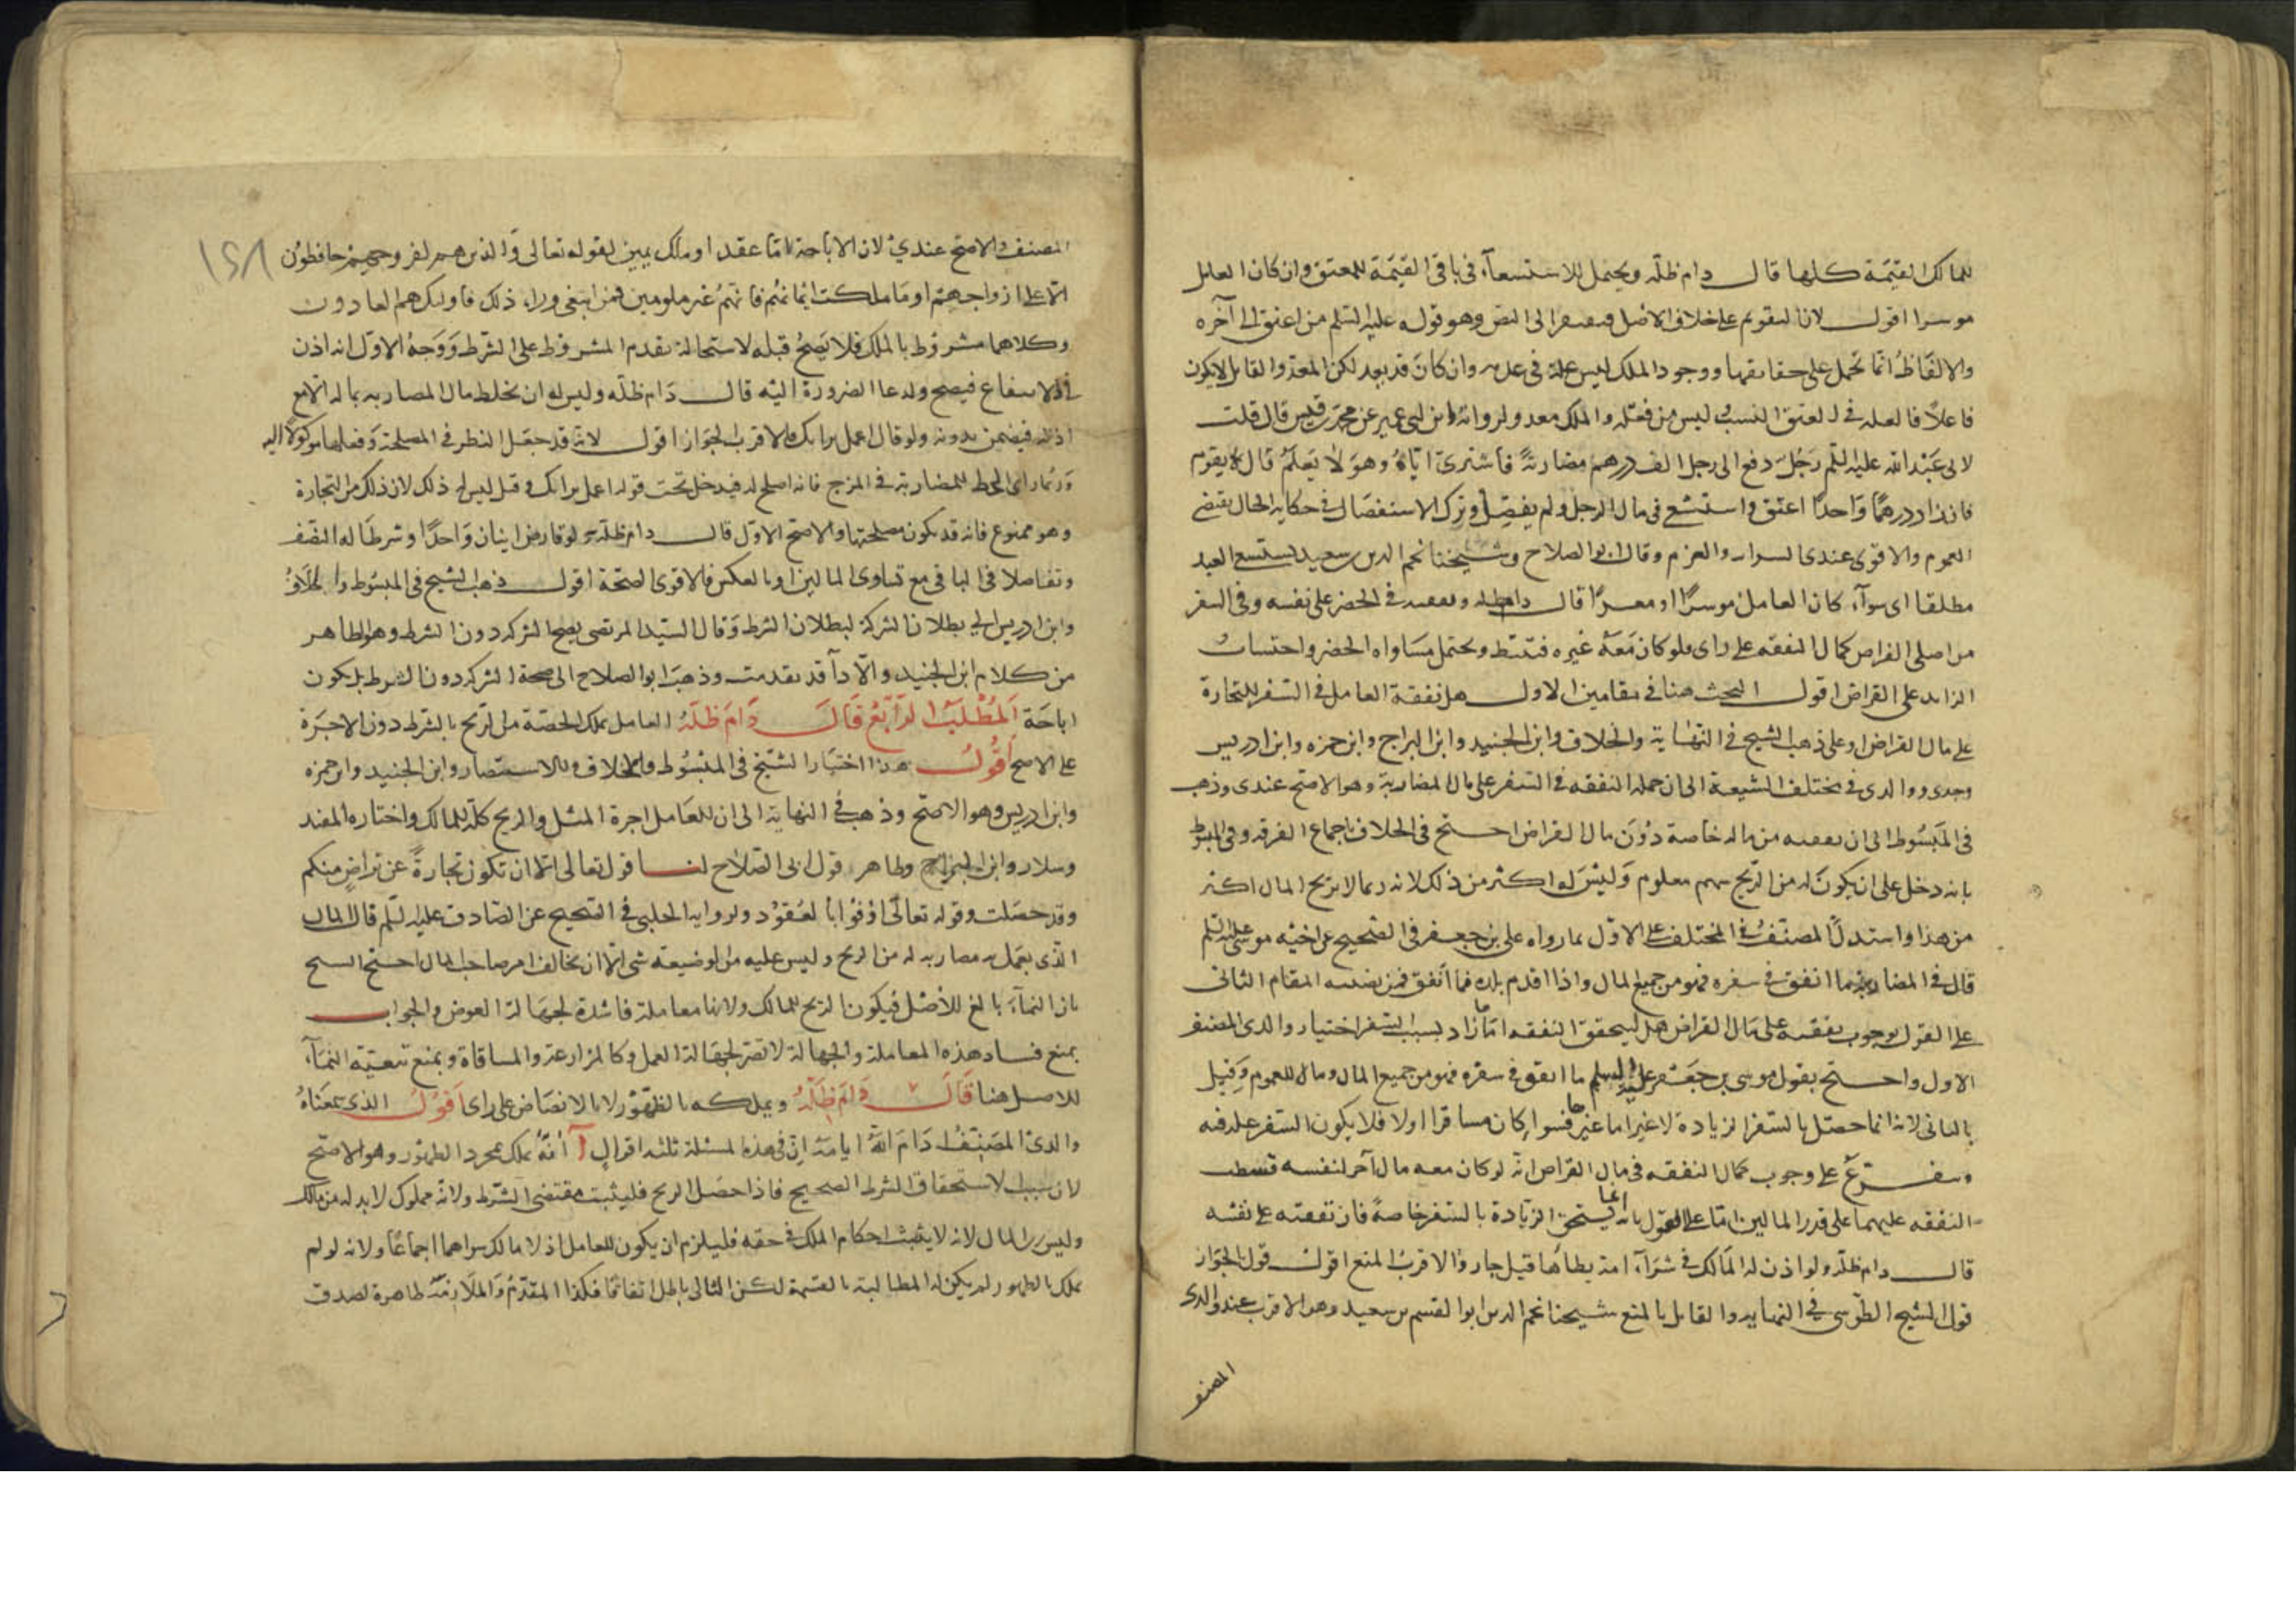 للمالك القيمة كلها قال دام ظله ويحتمل الاستسعاء في باقي القيمة للمعتق وان كان العامل
موسرا اقول لان التقويم على خلاف الاصل فيقتصر الى النص وهو قوله عليه السلم من اعتق الى آخره
والالفاظ انما تحمل على حقايقها ووجود الملك ليس علة في عدمه وان كان قد يعد لكن المعد والقابل لا يكون
فاعلا فالعلة في العتق النسب ليس من فعله والملك معد ولرواية ابن ابي عمير عن محمد بن قيس قال قلت
لابي عبد الله عليه السلم رجل دفع الى رجل الف درهم مضاربة فاشترى اباه وهو لا يعلم قال يقوم
فان زاد درهما واحدا اعتق واستسعى في مال الرجل ولم يفصل وترك الاستفصال في حكاية الحال يقتضي
العموم والاقوى عندي السراية والغرم وقال ابو الصلاح وشيخنا نجم الدين بن سعيد يستسعى العبد
مطلقا اي سواء كان العامل موسرا او معسرا قال دام ظله ونفقته في الحضر على نفسه وفي السفر
من اصل القراض كمال النفقة على راى ولو كان معه غيره فتقسط ويحتمل مساواة الحضر واحتساب
الزايد على القراض اقول البحث هنا في مقامين الاول هل نفقة العامل في السفر للتجارة
على مال القراض او على ذهب الشيخ في النهاية والخلاف وابن الجنيد وابن البراج وابن حمزه وابن ادريس
وجدى ووالدى في مختلف الشيعة الى ان جملة النفقه في السفر على مال المضاربة وهو الاصح عندى وذهب
في المبسوط الى ان نفقته من ماله خاصة دون مال القراض احتج في الخلاف باجماع الفرقه وفي المبسوط
بانه دخل على ان يكون له من الربح سهم معلوم وليس له اكثر من ذلك لانه ربما لا يربح المال اكثر
من هذا واستدل المصنف في المختلف على الاول بما رواه على بن جعفر في الصحيح عن اخيه موسى عليه السلم
قال في المضارب ما انفق في سفره فهو من جميع المال واذا اقدم بلده فما انفق فمن نصيبه المقام الثاني
على القول بوجوب نفقته على مال القراض هل يستحق النفقه او ما زاد بسبب السفر اختيار والدى المصنف
الاول واحتج بقول موسى بن جعفر عليه السلم ما انفق في سفره فهو من جميع المال وما للعموم وقيل
بالثاني لانه انما حصل بالسفر الزيادة لا غير اما غيرها فسوا كان مسافرا اولا فلا يكون السفر علة فيه
ويتفرع على وجوب كمال النفقه في مال القراض انه لو كان معه مال آخر لنفسه قسطت
النفقه عليهما على قدر المالين اما على القول بانه انما يستحق الزيادة بالسفر خاصة فان نفقته على نفسه
قال دام ظله ولو اذن له المالك في شراء امة يطاها قيل جاز والاقرب المنع اقول قول الجواز
قول الشيخ الطوسي في النهايه والقايل بالمنع شيخنا نجم الدين ابو القسم بن سعيد وهو الاقرب عند والدى
المصنف
١٢٨
المصنف والاصح عندي لان الاباحة اما عقد او ملك يمين لقوله تعالى والذين هم لفروجهم حافظون
الا على ازواجهم او ما ملكت ايمانهم فانهم غير ملومين فمن ابتغى وراء ذلك فاولئك هم العادون
وكلاهما مشروط بالملك فلا يصح قبله لاستحالة تقدم المشروط على الشرط ووجه الاول انه اذن
في الانتفاع فيصح ولدعا الضرورة اليه قال دام ظله وليس له ان يخلط مال المضاربه بماله الا مع
اذنه فيضمن بدونه ولو قال اعمل برايك فالاقرب الجواز اقول لانه قد جعل النظر في المصلحة وفعلها موكولا اليه
وربما راى الحظ للمضاربة في المزج فانه اصلح له فيدخل تحت قوله اعمل برايك وقيل ليس له ذلك لان ذلك من التجارة
وهو ممنوع فانه قد يكون مصلحتها والاصح الاول قال دام ظله ولو قارض اثنان واحدا وشرطا له النصف
وتفاضلا في الباقي مع تساوى المالين او بالعكس فالاقوى الصحة اقول ذهب الشيخ في المبسوط والخلاف
وابن ادريس الى بطلان الشركة لبطلان الشرط وقال السيد المرتضى يصح الشركه دون الشرط وهو الظاهر
من كلام ابن الجنيد والادلة قد تقدمت وذهب ابو الصلاح الى صحة الشركه دون الشرط بل يكون
اباحة المطلب الرابع قال دام ظله العامل يملك الحصة من الربح بالشرط دون الاجرة
على الاصح اقول هذا اختيار الشيخ في المبسوط والخلاف والاستبصار وابن الجنيد وابن حمزه
وابن ادريس وهو الاصح وذهب في النهاية الى ان للعامل اجرة المثل والربح كله للمالك واختاره المفيد
وسلار وابن البراج وظاهر قول ابي الصلاح لنا قوله تعالى الا ان تكون تجارة عن تراض منكم
وقد حصلت وقوله تعالى اوفوا بالعقود ولروايه الحلبي في الصحيح عن الصادق عليه السلم قال المال
الذى يعمل به مضاربه له من الربح وليس عليه من الوضيعة شى الا ان يخالف امر صاحب المال احتج الشيخ
بان النماء تابع للاصل فيكون الربح للمالك ولانها معاملة فاسدة لجهالة العوض والجواب
بمنع فساد هذه المعاملة والجهالة لا تضر لجهالة العمل وكالمزارعة والمساقاة وبمنع تبعية النماء
للاصل هنا قال دام ظله ويملكه بالظهور لا بالانضاض على راى اقول الذى سمعناه
والدى المصنف دام الله ايامه ان في هذه المسئلة ثلثه اقوال آ انه يملك بمجرد الظهور وهو الاصح
لان سبب الاستحقاق الشرط الصحيح فاذا حصل الربح فليثبت مقتضى الشرط ولانه مملوك لابد له من مالك
وليس رب المال لانه لا يثبت احكام الملك في حقه فليلزم ان يكون للعامل اذ لا مالك سواهما اجماعا ولانه لو لم
يملك بالظهور لم يكن له المطالبة بالقسمة لكن التالى باطل اتفاقا فكذا المقدم والملازمة ظاهرة لصدق